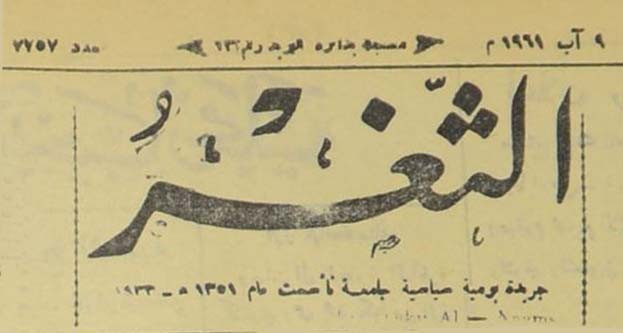 ٩ آب ١٩٦١ م مسجلة بدائرة البريد رقم ١٣٦ عدد ٧٧٥٧
الثَّغْرُ
جريدة يومية صباحية جامعة تأسست عام ١٣٥١ ه - ١٩٣٣
Al -